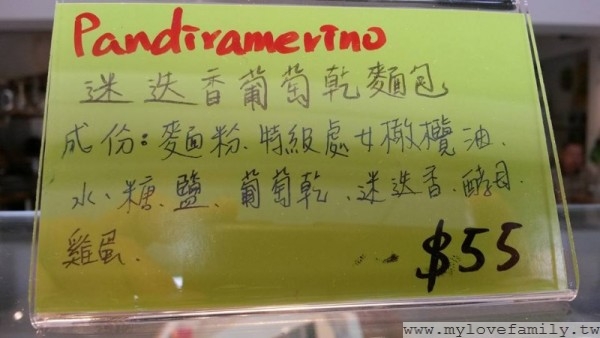 Pandiramerino
迷迭香葡萄乾麵包
成份:麵粉、特級處女橄欖油、
水、糖、鹽、葡萄乾、迷迭香、酵母、
雞蛋.
$55
www.mylovefamily.tw